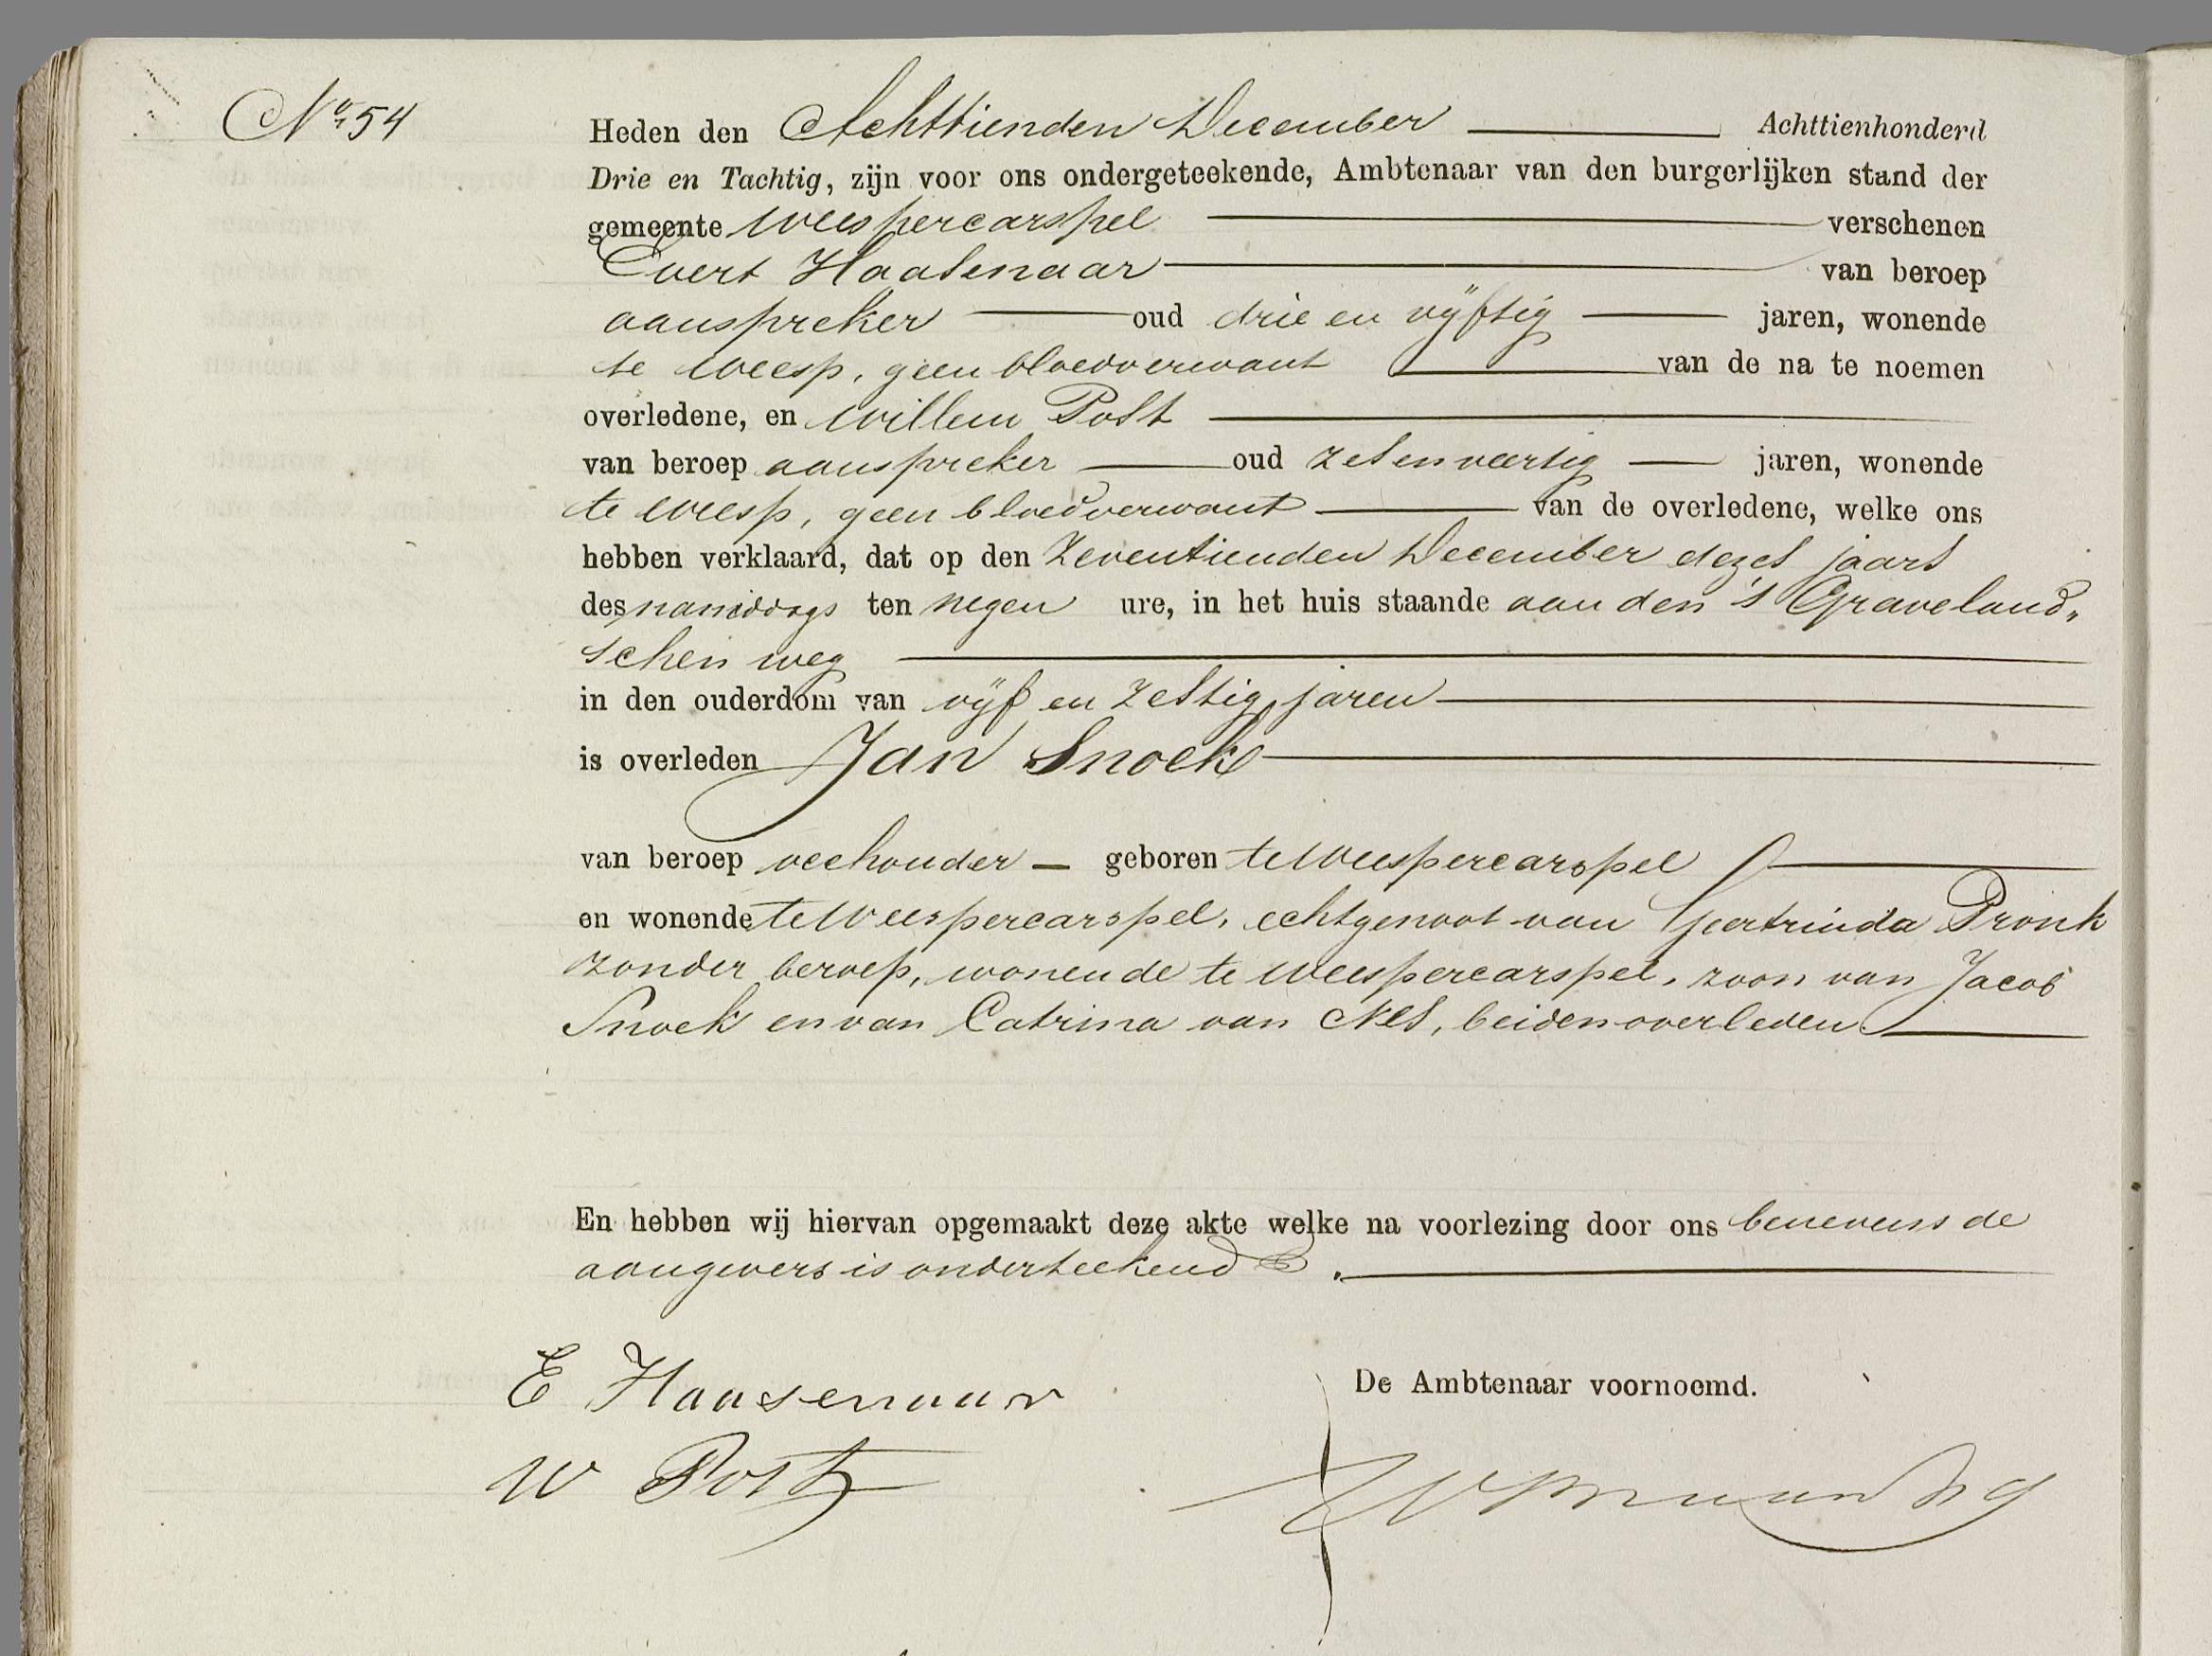 No. 54
Heden den Achttienden December Achttienhonderd
Drie en Tachtig, zijn voor ons ondergeteekende, Ambtenaar van den burgerlijken stand der
gemeente Weespercarspel verschenen
Evert Haasenaar van beroep
aanspreker oud drie en vijftig jaren, wonende
te Weesp, geen bloedverwant van de na te noemen
overledene, en Willem Post
van beroep aanspreker oud zes en veertig jaren, wonende
te Weesp, geen bloedverwant van de overledene, welke ons
hebben verklaard, dat op den Zeventienden December dezes jaars
des namiddags ten negen ure, in het huis staande aan den 's Graveland„
schen weg
in den ouderdom van vijf en zestig jaren
is overleden Jan Snoek
van beroep veehouder geboren te Weespercarspel
en wonende te Weespercarspel, echtgenoot van Geertruida Pronk
zonder beroep, wonende te Weespercarspel, zoon van Jacob
Snoek en van Catrina van Nes, beiden overleden
En hebben wij hiervan opgemaakt deze akte welke na voorlezing door ons benevens de
aangevers is onderteekend.
E Haasenaar
W Post
De Ambtenaar voornoemd.